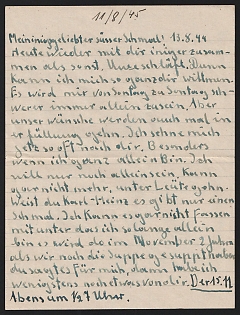 11/8/45
Mein inniggeliebter süsser Schmal! 13.8.44
Heute wieder mit dir inniger zusam-
men als sonst. Unze schläft. Dann
kann ich mich so ganz dir widmen.
Es wird mir von Sontag zu Sontag sch-
werer immer allein zu sein. Aber
unser wünsche werden auch mal in
erfüllung gehn. Ich sehne mich
jetz so oft nach dir. Besonders
wenn ich ganz allein bin. Ich
will nur noch allein sein. Kann
gar nicht mehr, unter Leute gehn.
Weist du Karl-Heinz es gibt nur einen
Schmal. Ich kann es gar nicht fassen
mit unter das ich so lange allein
bin es wird de im November 2 Jahre
als wir noch die Suppe gesuppt haben
du sagtes für mich, dann habe ich
wenigstens noch etwas von dir. Der 15.11
Abens um ½7 Uhr.